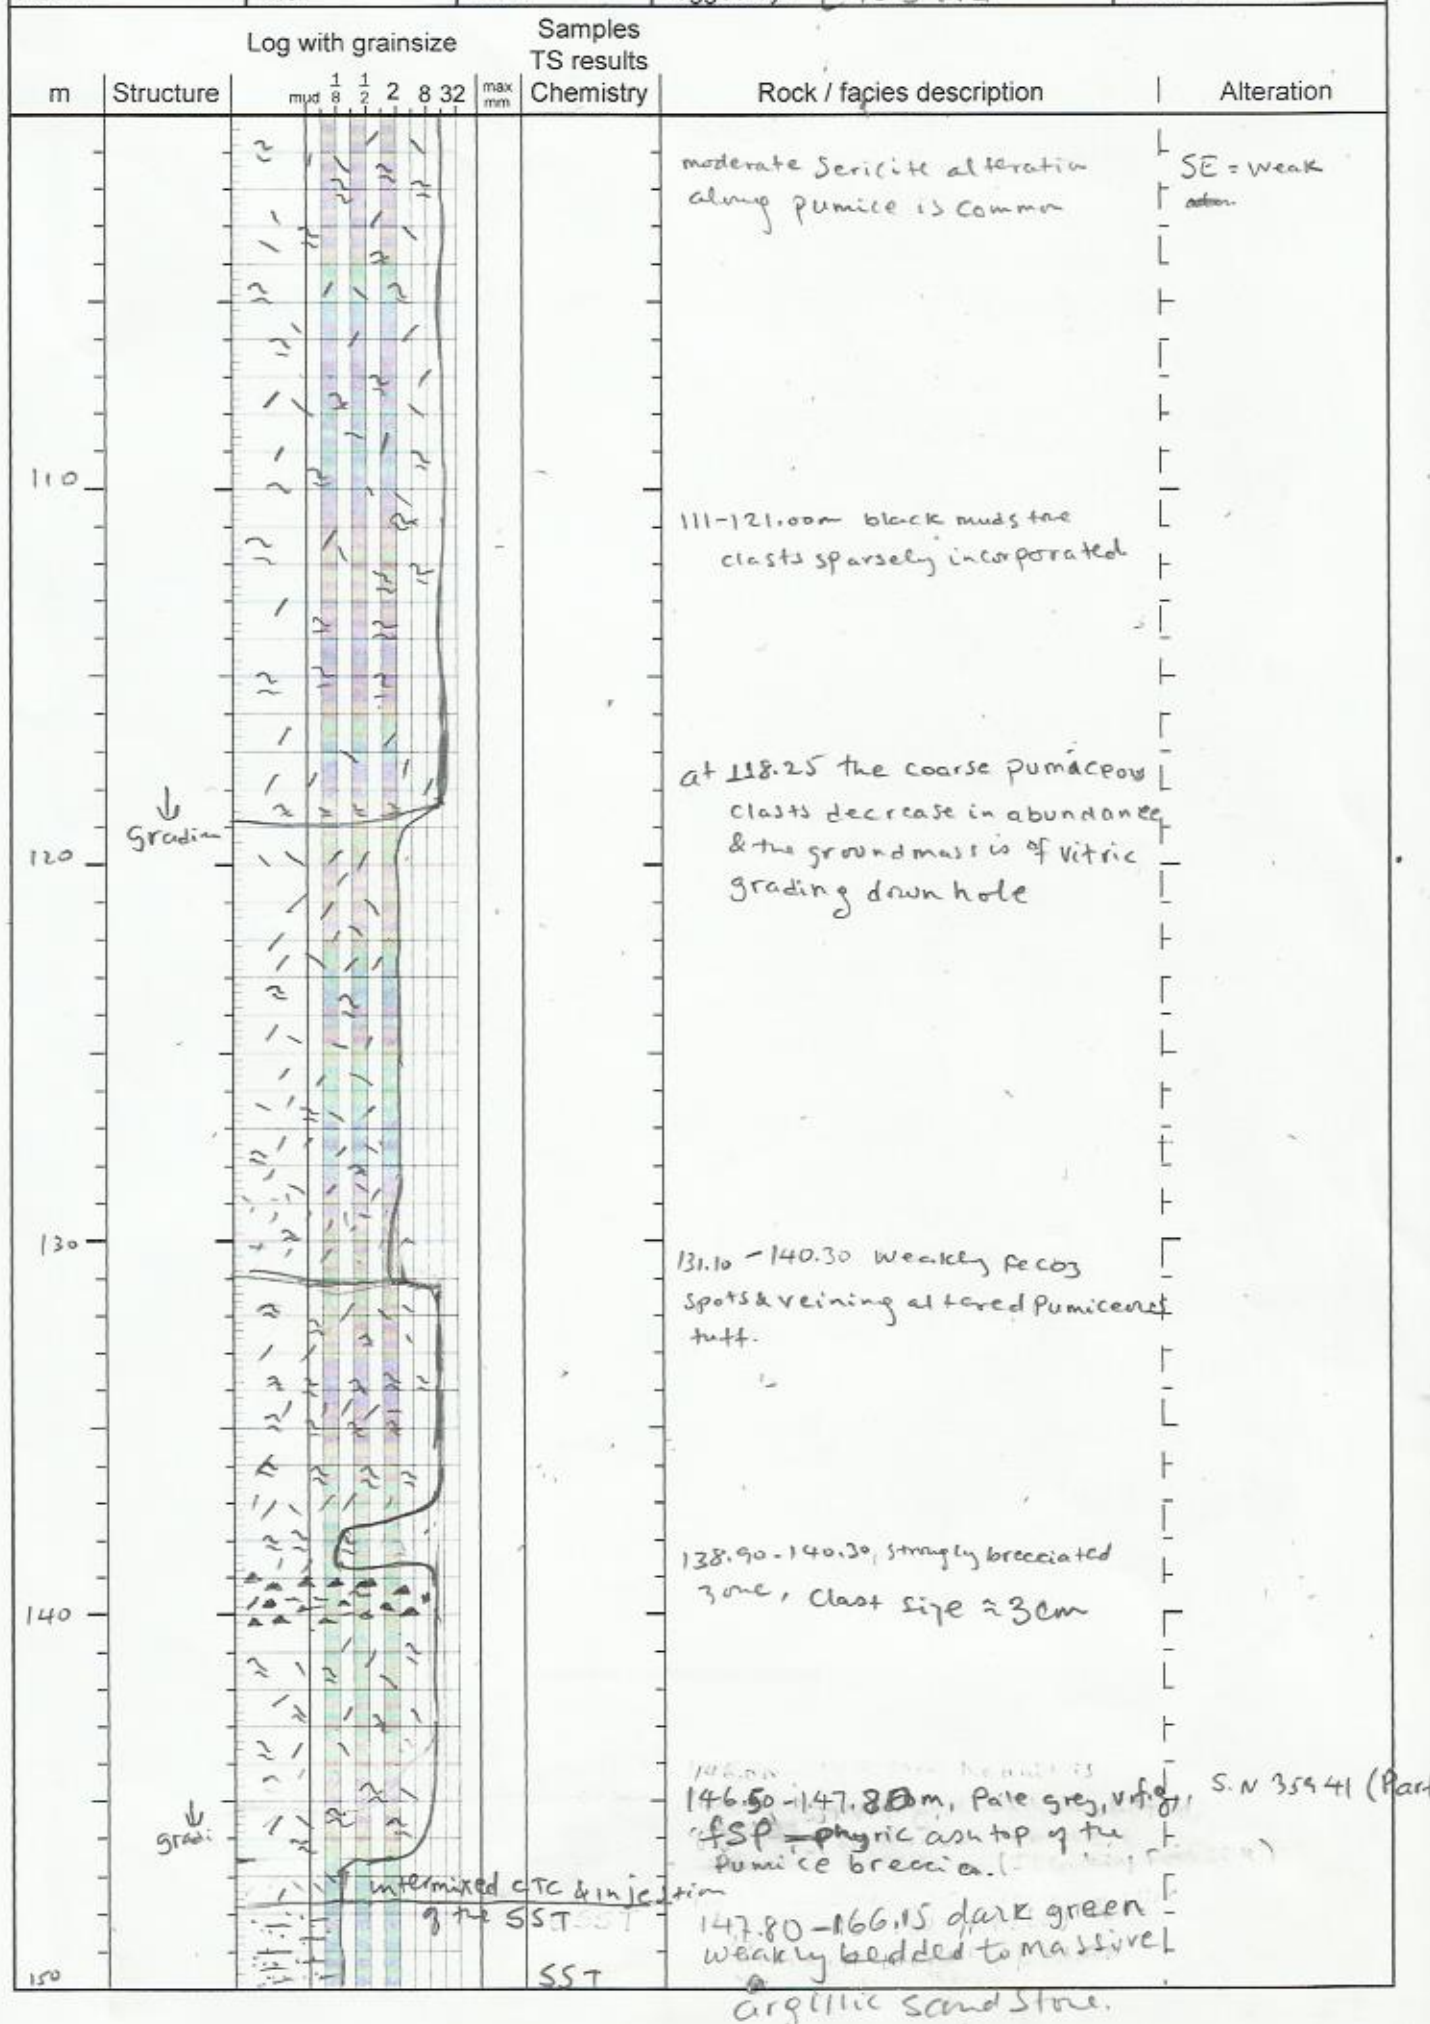 Log with grainsize
Samples
TS results
m Structure mud 1/8 1/2 2 8 32 max mm Chemistry Rock / facies description Alteration
moderate Sericite alteration
along pumice is common
SE = weak
110
111-121.00m black mudstone
clasts sparsely incorporated
at 118.25 the coarse pumaceous
clasts decrease in abundance
& the groundmass is of vitric
grading down hole
↓
gradin
120
130
131.10 - 140.30 weakly FeCO3
spots & veining altered Pumiceous
tuff.
138.90 - 140.30, strongly brecciated
zone, Clast size ≈ 3cm
140
146.50 - 147.80m, Pale grey, v.f.g,
fsp = phyric ash top of the
Pumice breccia.
S.N 35941 (Part
↓
gradi
intermixed CTC & injestion
of the SST
147.80 - 166.15 dark green
weakly bedded to massive
argillic sandstone.
SST
150